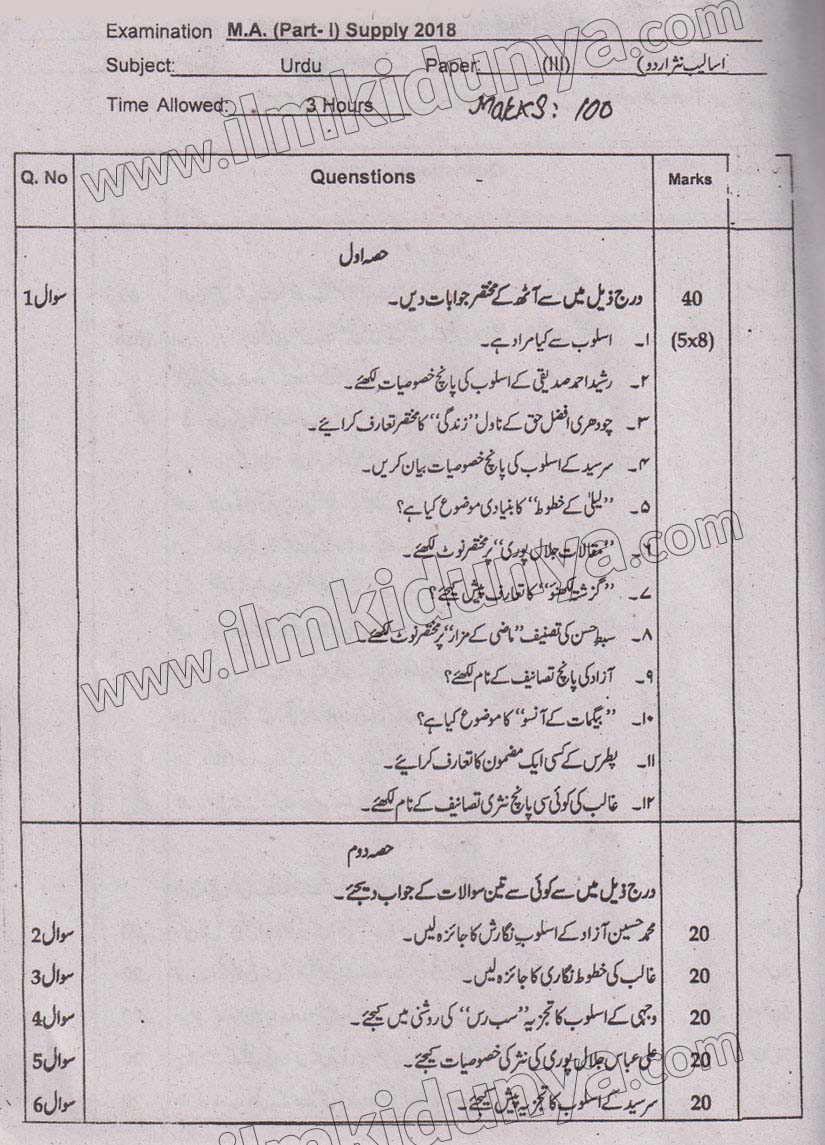 Examination M.A. (Part- I) Supply 2018
Subject: Urdu Paper: (III) (اسالیب نثر اردو
Time Allowed: 3 Hours Marks: 100
Q. No Quenstions Marks
حصہ اول
سوال 1 درج ذیل میں سے آٹھ کے مختصر جوابات دیں۔ 40
۱۔ اسلوب سے کیا مراد ہے۔ (5x8)
۲۔ رشید احمد صدیقی کے اسلوب کی پانچ خصوصیات لکھئے۔
۳۔ چودھری افضل حق کے ناول ”زندگی“ کا مختصر تعارف کرائیے۔
۴۔ سرسید کے اسلوب کی پانچ خصوصیات بیان کریں۔
۵۔ ”لیلیٰ کے خطوط“ کا بنیادی موضوع کیا ہے؟
۶۔ ”مقالات جلال پوری“ پر مختصر نوٹ لکھئے۔
۷۔ ”گزشتہ لکھنؤ“ کا تعارف پیش کیجئے؟
۸۔ سبط حسن کی تصنیف ”ماضی کے مزار“ پر مختصر نوٹ لکھئے۔
۹۔ آزاد کی پانچ تصانیف کے نام لکھئے؟
۱۰۔ ”بیگمات کے آنسو“ کا موضوع کیا ہے؟
۱۱۔ پطرس کے کسی ایک مضمون کا تعارف کرائیے۔
۱۲۔ غالب کی کوئی سی پانچ نثری تصانیف کے نام لکھئے۔
حصہ دوم
درج ذیل میں سے کوئی سے تین سوالات کے جواب دیجئے۔
سوال 2 محمد حسین آزاد کے اسلوب نگارش کا جائزہ لیں۔ 20
سوال 3 غالب کی خطوط نگاری کا جائزہ لیں۔ 20
سوال 4 وجہی کے اسلوب کا تجزیہ ”سب رس“ کی روشنی میں کیجئے۔ 20
سوال 5 علی عباس جلال پوری کی نثر کی خصوصیات کیجئے۔ 20
سوال 6 سرسید کے اسلوب کا تجزیہ پیش کیجئے۔ 20
www.ilmkidunya.com
www.ilmkidunya.com
www.ilmkidunya.com